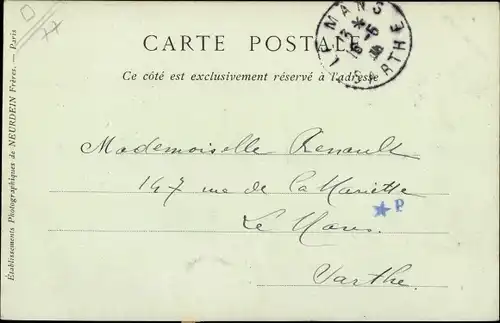 CARTE POSTALE
Ce côté est exclusivement réservé à l'adresse
LE MANS
SARTHE
Mademoiselle Renault
147 rue de la Mariette
Le Mans
Sarthe
★ P
Etablissements Photographiques de NEURDEIN Frères. — Paris